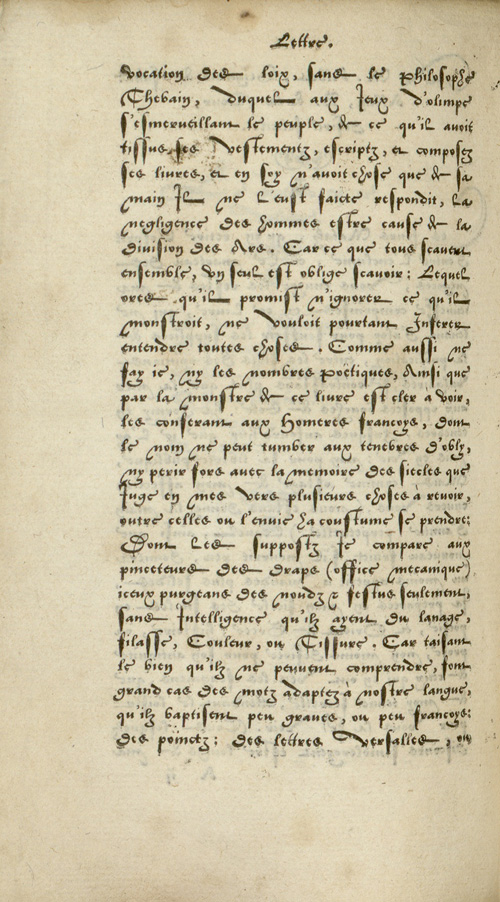 Lettre.
vocation des loix, sans le Philosophe
Thebain, duquel aux Jeux d'olimpe
s'esmerveillant le peuple, de ce qu'il avoit
tissus ses Vestementz, escriptz, et composez
ses livres, et en soy n'avoit chose que de sa
main Il ne l'eust faicte respondit, La
negligence des hommes estre cause de la
division des Ars. Car ce que tous scavent
ensemble, Vn seul est oblige scavoir: Lequel
ores qu'il promist n'ignorer ce qu'il
monstroit, ne Vouloit pourtant Inferer
entendre toutes choses. Comme aussi ne
fay ie, ny les nombres Poëtiques, Ainsi que
par la monstre de ce livre est cler a voir,
les conferant aux Homeres francoys, Dont
le nom ne peut tumber aux tenebres d'obly,
ny perir fors avec la memoire des siecles que
Juge en mes Vers plusieurs choses à revoir,
outre celles ou l'envie ha coustume se prendre:
Dont Les suppostz Je compare aux
pinceteurs des draps (office mecanique)
iceux purgeans des noudz & festus seulement,
sans Intelligence qu'ilz ayent du lanage,
filasse, Couleur, ou Tissure. Car taisant
le bien qu'ilz ne peuvent comprendre, font
grand cas des motz adaptez à nostre langue,
qu'ilz baptisent peu graves, ou peu francoys:
des poinctz: des lettres Versalles, ou